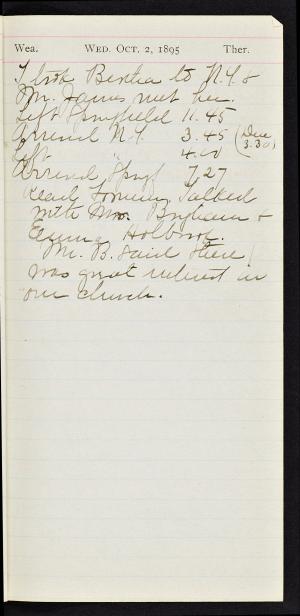 Wea. WED. OCT. 2, 1895 Ther.
I took Bertha to N.Y. &
Mr. James met her.
Left Springfield 11.45
Arrived N.Y. 3.45 (Due 3.30)
Left " 4.00
Arrived Spgf 7.27
Read Talked
with Mrs. Brigham &
Holbrook.
Mr. B. said there
was great interest in
our church.